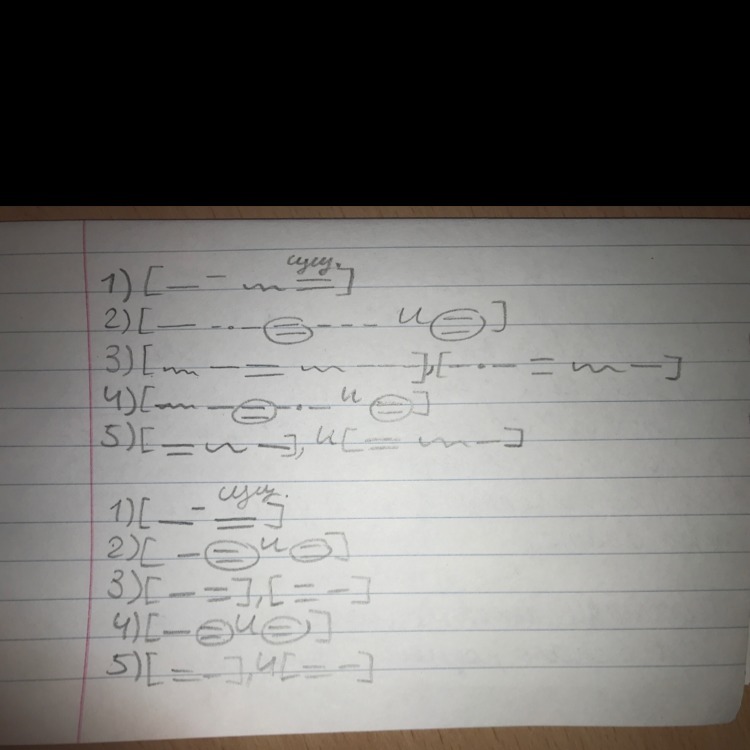 1) [ — – ~~~ сущ. = ]
2) [ — -·- = --- и = ]
3) [ ~~~ — = ~~~ — ], [ -·- = ~~~ — ]
4) [ ~~~ — = -·- и = ]
5) [ = ~~~ — ], и [ = ~~~ — ]
1) [ — – сущ. = ]
2) [ — = и = ]
3) [ — = ], [ = — ]
4) [ — = и = ]
5) [ = — ], и [ = — ]